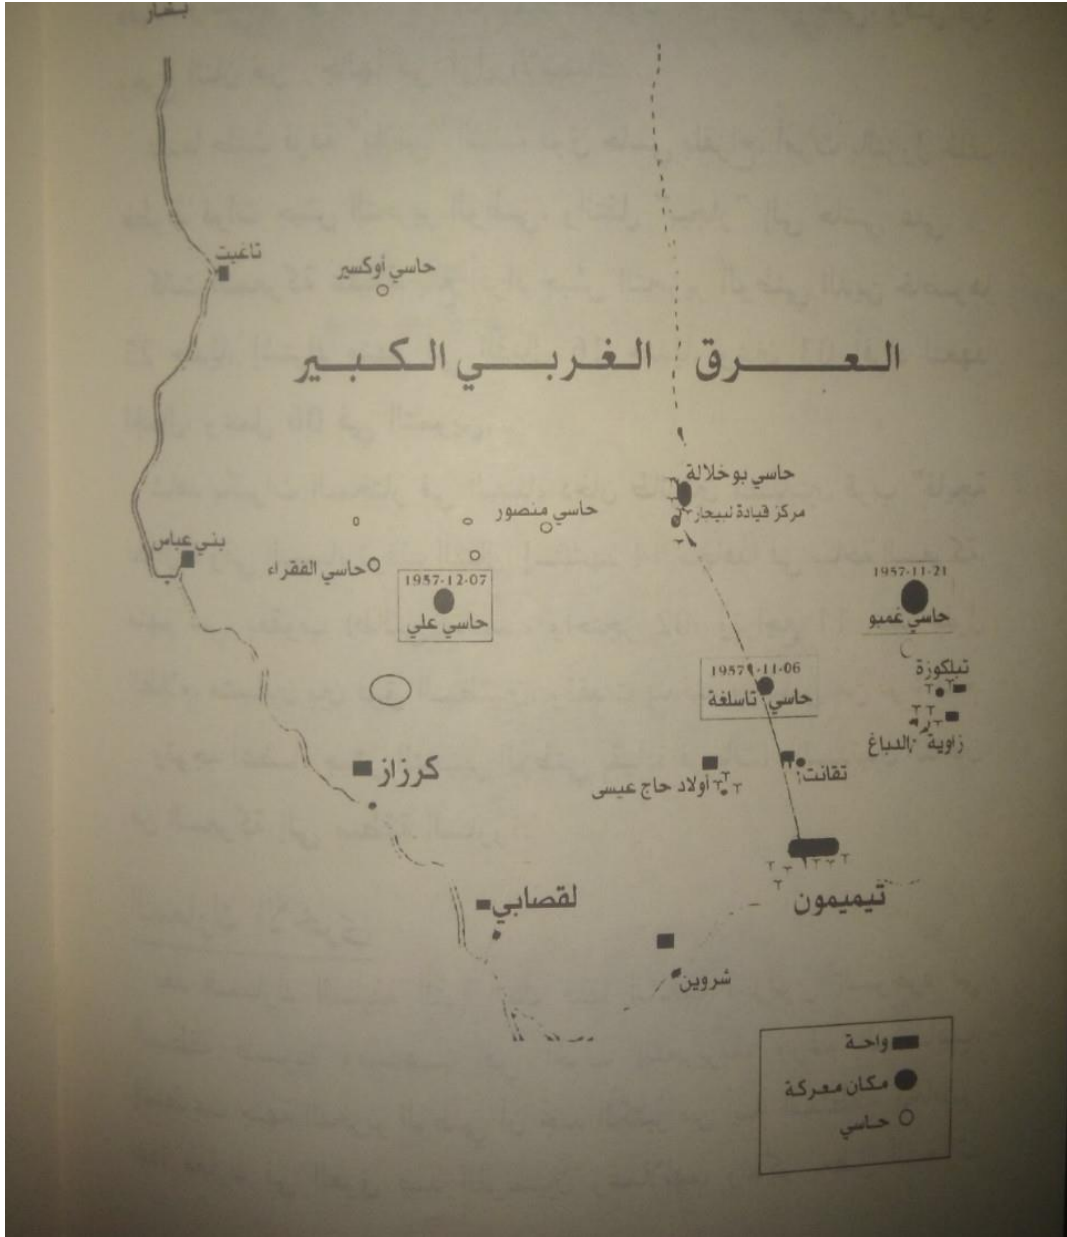 بشار
تاغيت
حاسي أوكسير
العرق الغربي الكبير
حاسي بوخلالة
مركز قيادة لبيجار
حاسي منصور
بني عباس
حاسي الفقراء
1957-12-07
حاسي علي
1957-11-21
حاسي غمبو
تبلكوزة
1957-11-06
حاسي تاسلغة
زاوية الدباغ
كرزاز
تقانت
أولاد حاج عيسى
لقصابي
تيميمون
شروين
واحة
مكان معركة
حاسي